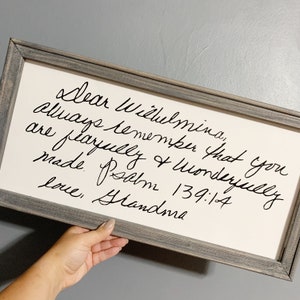 Dear Wilhelmina,
always remember that you
are fearfully & wonderfully
made psalm 139:14
love, Grandma